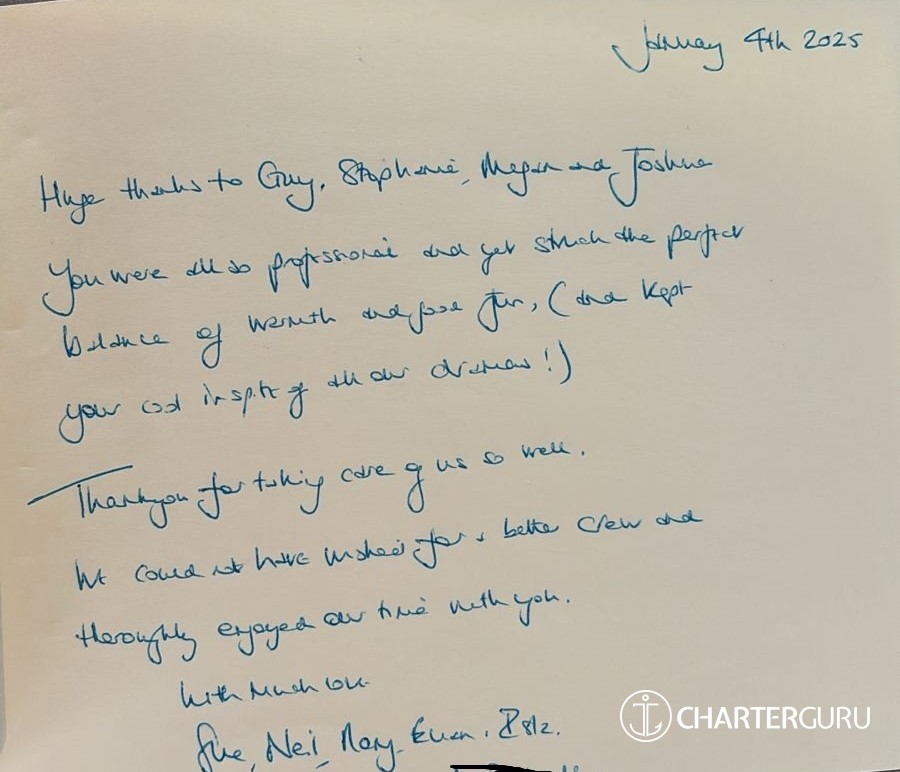 January 4th 2025
Huge thanks to Guy, Stephanie, Megan and Joshua
You were all so professional and yet struck the perfect
balance of warmth and good fun, (and kept
your cool inspite of all our dramas!)
Thankyou for taking care of us so well.
We could not have wished for a better crew and
thoroughly enjoyed our time with you.
With much love
Sue, Neil, Rory, Euan,
CHARTERGURU